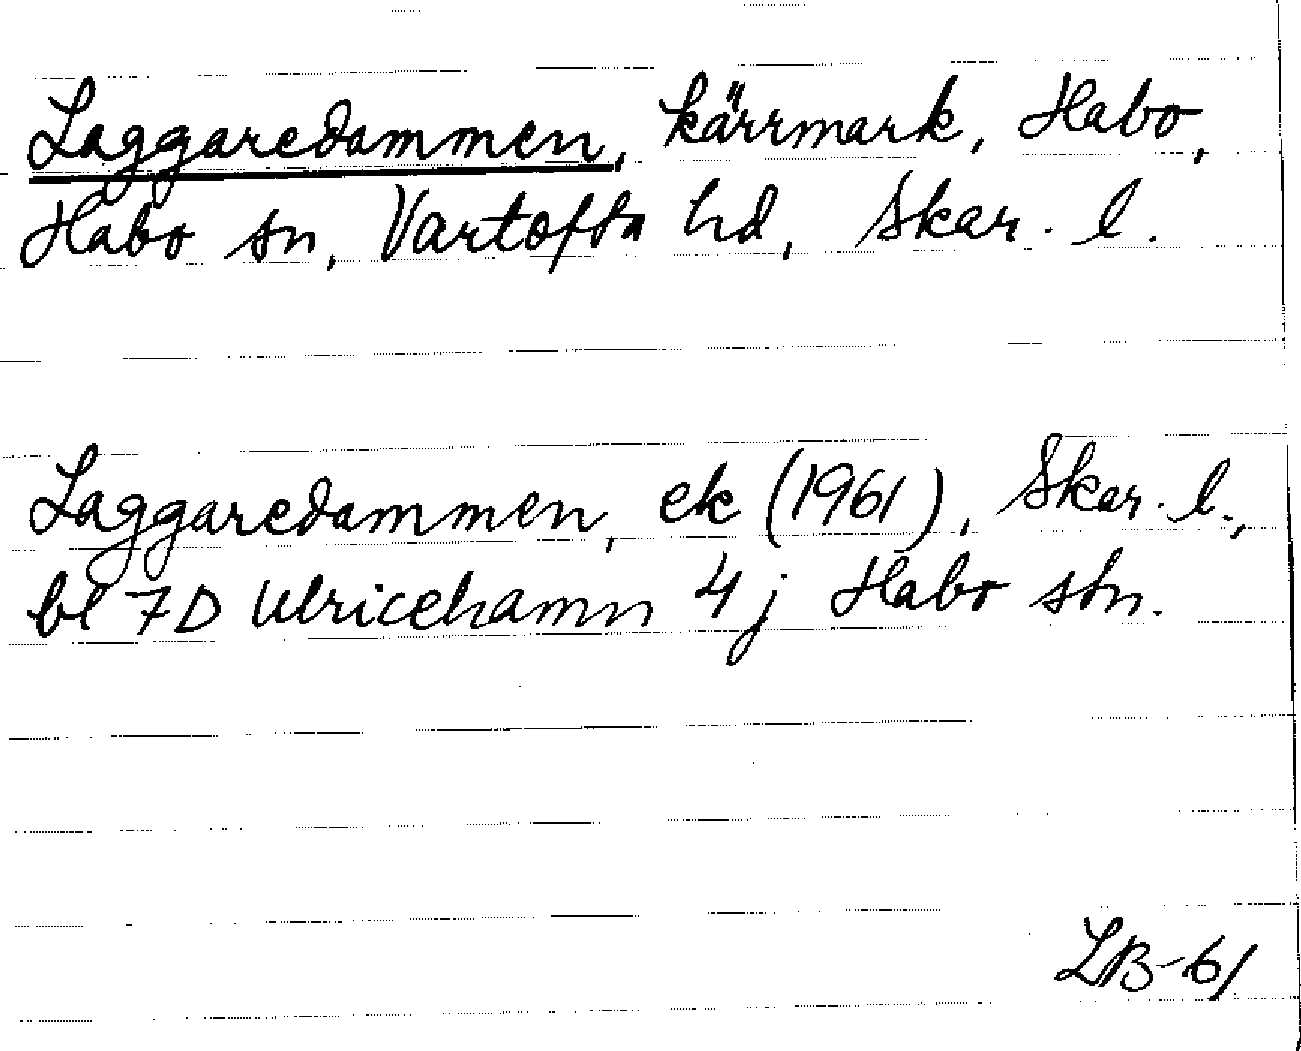 Laggaredammen, kärrmark, Habo,
Habo sn, Vartofta hd, Skar. l.
Laggaredammen, ek (1961), Skar. l.,
bl 7D Ulricehamn 4j Habo stn.
LB-61